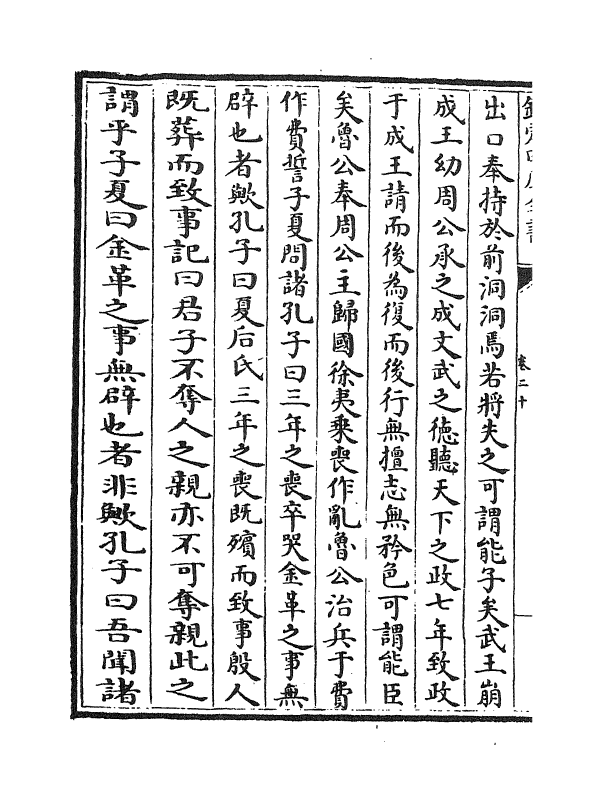 卷二十
出口奉持於前洞洞焉若將失之可謂能子矣武王崩
成王幼周公承之成文武之徳聽天下之政七年致政
于成王請而後為復而後行無擅志無矜色可謂能臣
矣魯公奉周公主歸國徐夷乗喪作亂魯公治兵于費
作費誓子夏問諸孔子曰三年之喪卒哭金革之事無
辟也者歟孔子曰夏后氏三年之喪既殯而致事殷人
既葬而致事記曰君子不奪人之親亦不可奪親此之
謂乎子夏曰金革之事無辟也者非歟孔子曰吾聞諸